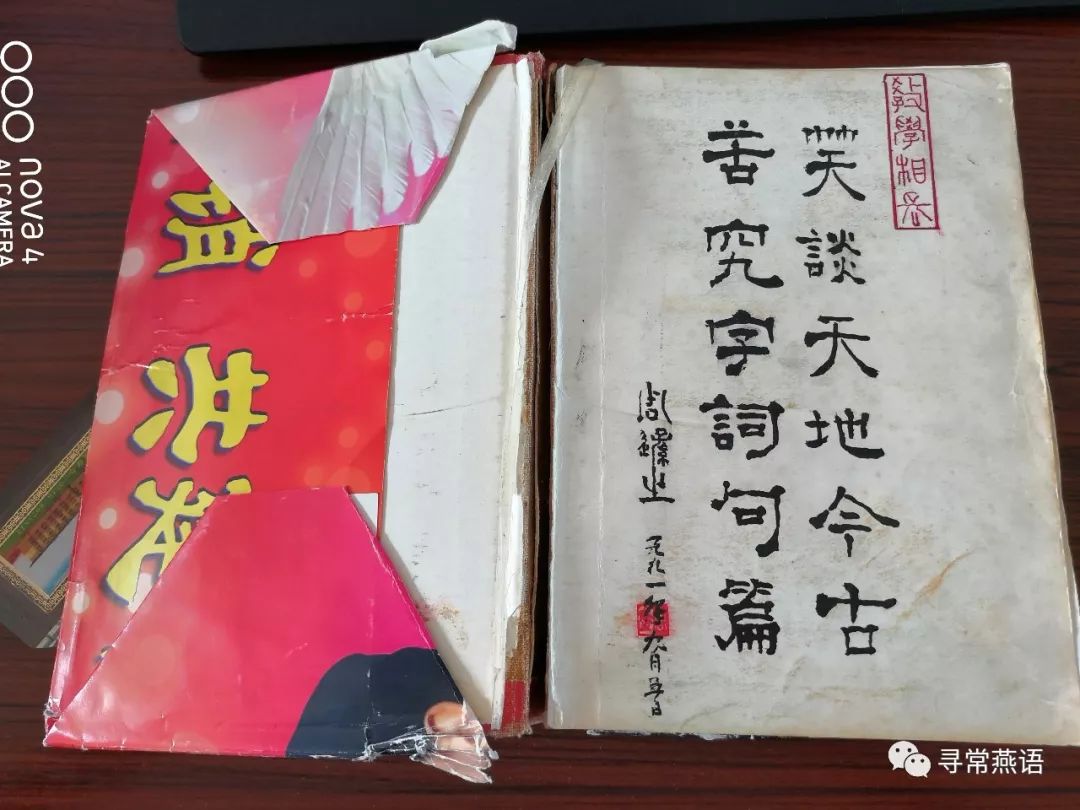 教學相长
笑談天地今古
苦究字詞句篇
一九九一年九月五日
共
nova 4
AI CAMERA
寻常燕语